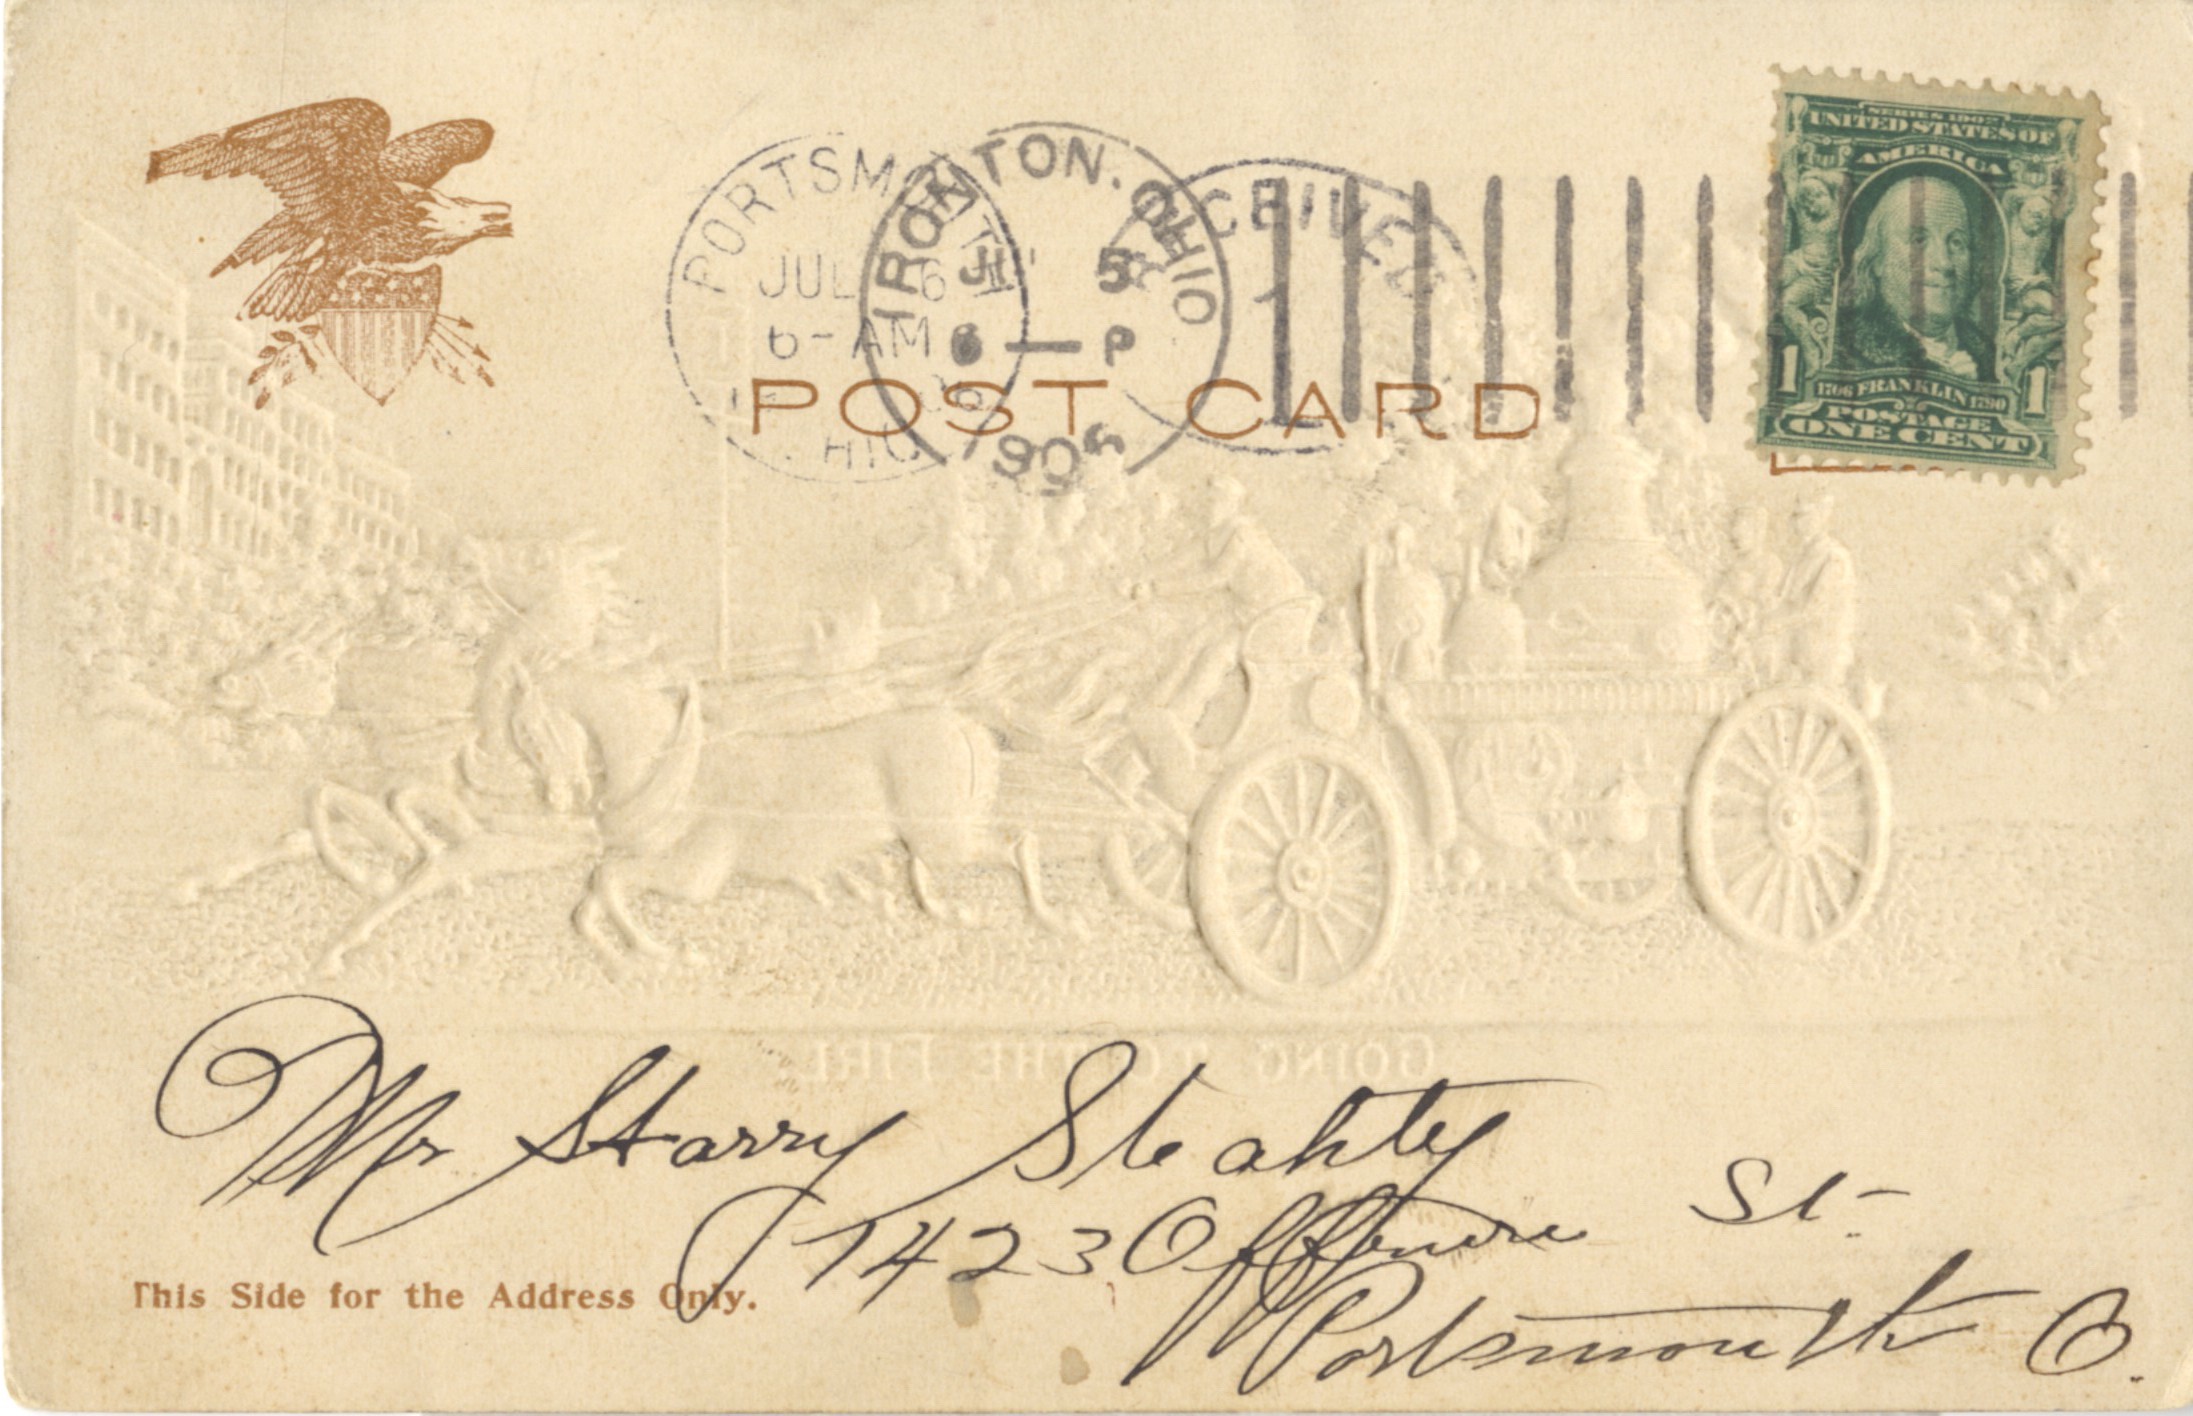 PORTSMOUTH
JUL 6
6-AM
OHIO
IRONTON. OHIO
JUL 5
6 — P
1906
RECEIVED
SERIES 1902
UNITED STATES OF
AMERICA
1 1706 FRANKLIN 1790 1
POSTAGE
ONE CENT
POST CARD
GOING TO THE FIRE
Mr Harry
1423 Offnere St-
Portsmouth O.
This Side for the Address Only.